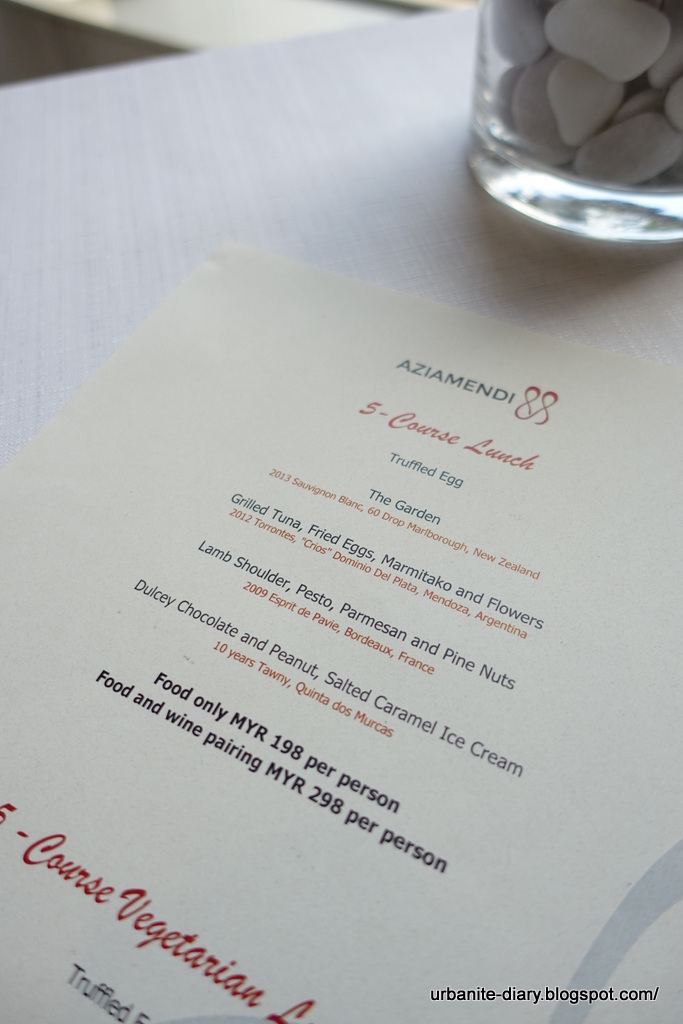 AZIAMENDI
5-Course Lunch
Truffled Egg
The Garden
2013 Sauvignon Blanc, 60 Drop Marlborough, New Zealand
Grilled Tuna, Fried Eggs, Marmitako and Flowers
2012 Torrontes, "Crios" Dominio Del Plata, Mendoza, Argentina
Lamb Shoulder, Pesto, Parmesan and Pine Nuts
2009 Esprit de Pavie, Bordeaux, France
Dulcey Chocolate and Peanut, Salted Caramel Ice Cream
10 years Tawny, Quinta dos Murcas
Food only MYR 198 per person
Food and wine pairing MYR 298 per person
5-Course Vegetarian
Truffled
urbanite-diary.blogspot.com/